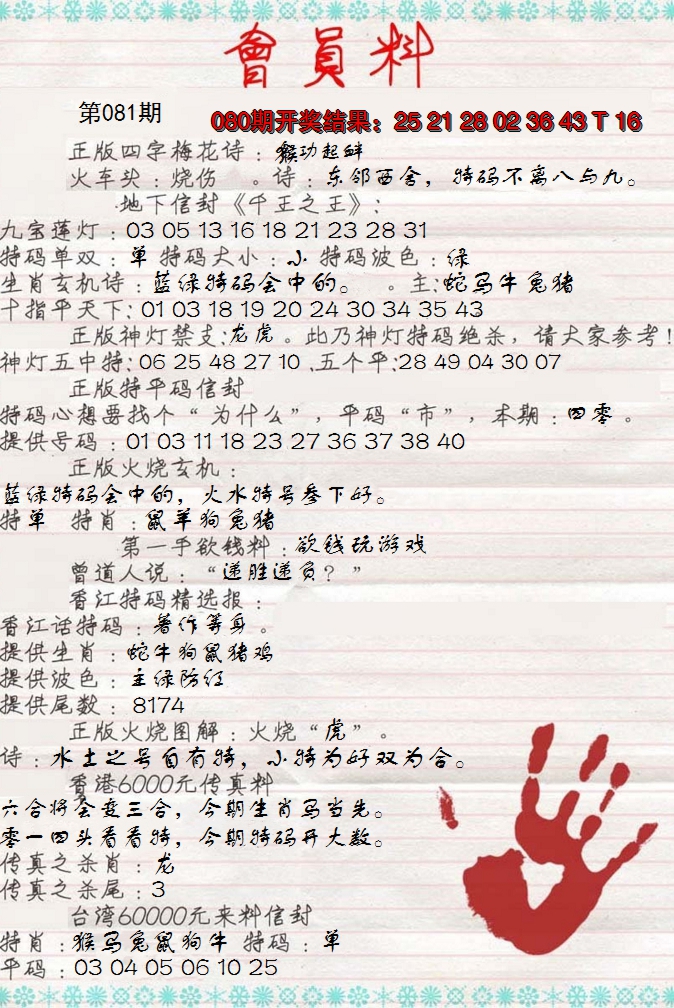 會員料
第081期
080期开奖结果：25 21 28 02 36 43 T 16
正版四字梅花诗：猴功起衅
火车头：烧伤 。诗：东邻西舍，特码不离八与九。
地下信封《千王之王》：
九宝莲灯：03 05 13 16 18 21 23 28 31
特码单双：单 特码大小：小 特码波色：绿
生肖玄机诗：蓝绿特码会中的。 。主：蛇马牛兔猪
十指平天下：01 03 18 19 20 24 30 34 35 43
正版神灯禁支：龙虎。此乃神灯特码绝杀，请大家参考！
神灯五中特：06 25 48 27 10 .五个平：28 49 04 30 07
正版特平码信封
特码心想要找个“为什么”，平码“市”，本期：四零。
提供号码：01 03 11 18 23 27 36 37 38 40
正版火烧玄机：
蓝绿特码会中的，火水特号参下好。
特单 特肖：鼠羊狗兔猪
第一手欲钱料：欲钱玩游戏
曾道人说：“递胜递负？”
香江特码精选报：
香江话特码：著作等身。
提供生肖：蛇牛狗鼠猪鸡
提供波色：主绿防红
提供尾数：8174
正版火烧图解：火烧“虎”。
诗：水土之号自有特，小特为好双为合。
香港6000元传真料
六合将会变三合，今期生肖马当先。
零一四头看看特，今期特码开大数。
传真之杀肖：龙
传真之杀尾：3
台湾60000元来料信封
特肖：猴马兔鼠狗牛 特码：单
平码：03 04 05 06 10 25